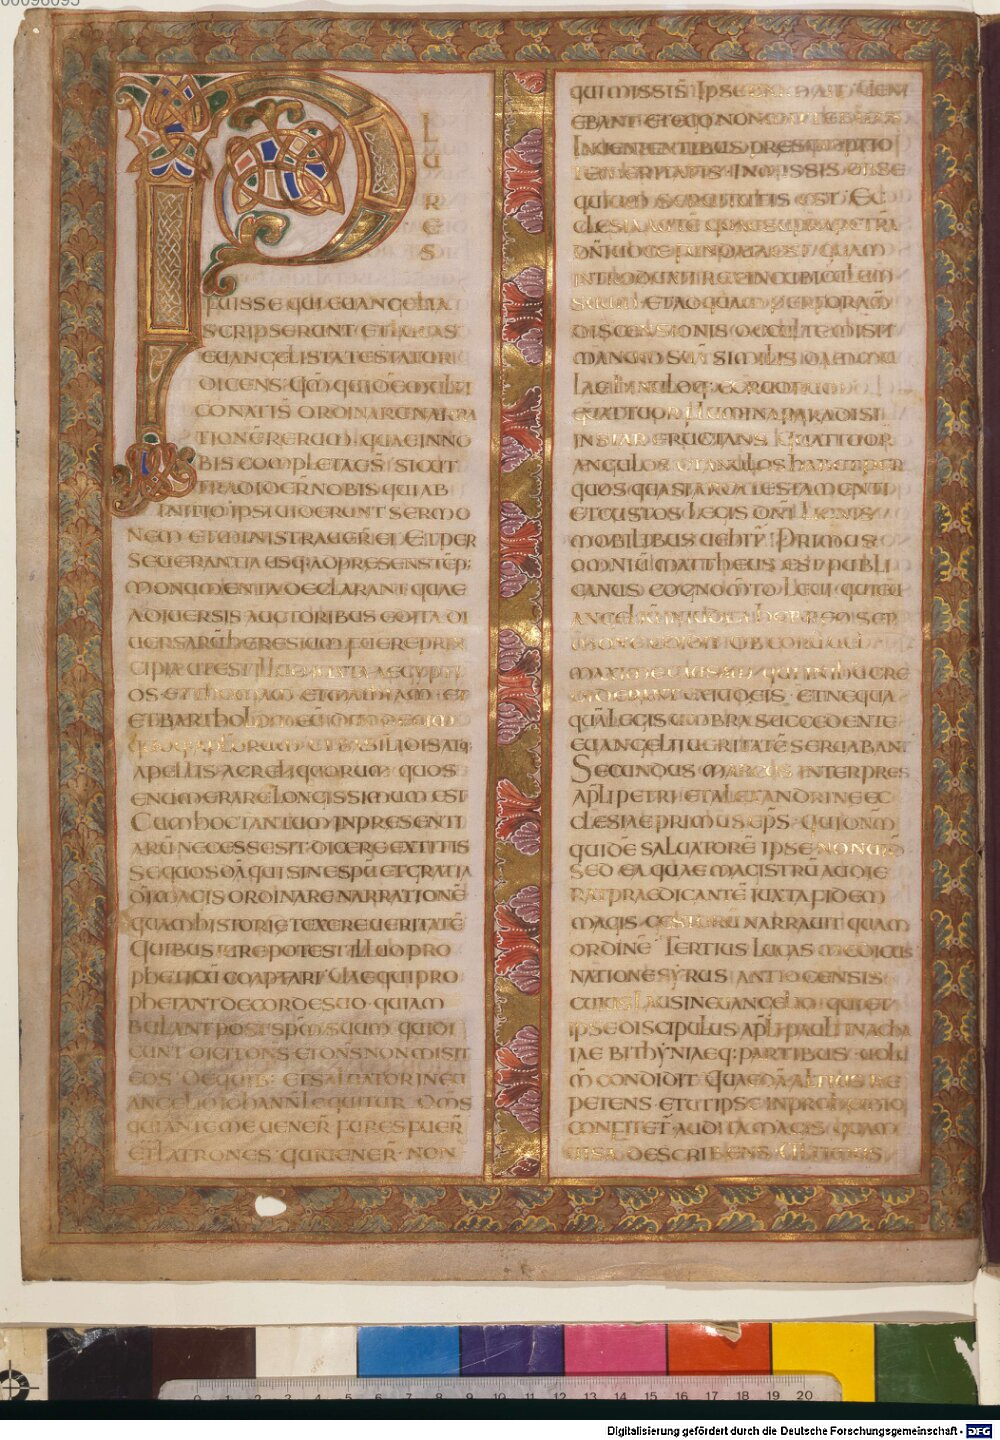 PLURES
FUISSE QUI EUANGELIA
SCRIPSERUNT ET LUCAS
EUANGELISTA TESTATUR
DICENS QM̄ QUIDĒ MULTI
CONATI S̄ ORDINARE NARRA
TIONĒ RERUM QUAE IN NO
BIS COMPLETAE S̄ SICUT
TRADIDER̄ NOBIS QUI AB
INITIO IPSI UIDERUNT SERMO
NEM ET MINISTRAUER̄ EI ET PER
SEUERANTIA USQ; AD PRESENS TĒP;
MONUMENTA DECLARANT QUAE
A DIUERSIS AUCTORIBUS EDITA DI
UERSARŪ HERESIUM FUERE PRIN
CIPIA UT EST ILLUD IUXTA AEGYPTI
OS ET THOMAM ET MATHIAM ET
ET BARTHOLOMEŪ DUODECIM
QUOQ; APLORUM ET BASILIDIS ATQ;
APELLIS AC RELIQUORUM QUOS
ENUMERARE LONGISSIMUM EST
CUM HOC TANTUM IN PRESENTI
ARŪ NECESSE SIT DICERE EXTITIS
SE QUOSDĀ QUI SINE SPŪ ET GRATIA
DĪ MAGIS ORDINARE NARRATIONĒ
QUAM HISTORIĘ TEXERE UERITATĒ
QUIBUS IURE POTEST ILLUD PRO
PHETICŪ COAPTARI UAE QUI PRO
PHETANT DE CORDE SUO QUI AM
BULANT POST SPM̄ SUUM QUI DI
CUNT DICIT DNS ET DN̄S NON MISIT
EOS DE QUIB; ET SALUATOR IN EU
ANGELIO IOHANNI LOQUITUR OMS
QUI ANTE ME UENER̄ FURES FUER̄
ET LATRONES QUI UENER̄ NON
QUI MISSI S̄ IPSE ENIM AIT UENI
EBANT ET EGO NON MITTEBĀ EOS
IN UENIENTIBUS PRESUMPTIO
TEMERITATIS IN MISSIS OBSE
QUIUM SERUITUTIS EST EC
CLESIA AUTĒ QUAE SUPRA PETRĀ
DN̄I UOCE FUNDATA EST QUAM
INTRODUXIT REX IN CUBICULUM
SUUM ET AD QUAM PER FORAM
DISCENSIONIS OCCULTE MISIT
MANUM SUĀ SIMILIS DAMMU
LAE HINULOQ; CERUORUM
QUATTUOR FLUMINA PARADISI
INSTAR ERUCTANS QUATTUOR
ANGULOS ET ANULOS HABET PER
QUOS QUASI ARCA TESTAMENTI
ET CUSTOS LEGIS DNI LIGNIS
MOBILIBUS UEHIT̄ PRIMUS
OMNIŪ MATTHEUS EST PUBLI
CANUS COGNOMTO LEUI QUI EU
ANGELIŪ IN IUDEA HEBREO SER
MAXIME CAUSAM QUI IN IHŪ CRE
DIDERANT EX IUDEIS ET NEQUA
QUĀ LEGIS UMBRA SUCCEDENTE
EUANGELII UERITATĒ SERUABANT
SECUNDUS MARCUS INTERPRES
APLI PETRI ET ALEXANDRINE EC
CLESIAE PRIMUS EPS QUI DNM
QUIDĒ SALUATORĒ IPSE NON UID̄
SED EA QUAE MAGISTRŪ AUDIE
RAT PRAEDICANTĒ IUXTA FIDEM
MAGIS GESTORŪ NARRAUIT QUAM
ORDINĒ TERTIUS LUCAS MEDICUS
NATIONE SYRUS ANTIOCENSIS
CUIUS LAUS IN EUANGELIO QUI ET
IPSE DISCIPULUS APLI PAULI IN ACHA
IAE BITHYNIAEQ; PARTIBUS UOLU
M̄ CONDIDIT QUAEDĀ ALTIUS RE
PETENS ET UT IPSE IN PROHEMIO
CONFITET̄ AUDITA MAGIS QUAM
UISA DESCRIBENS ULTIMUS
Digitalisierung gefördert durch die Deutsche Forschungsgemeinschaft - DFG